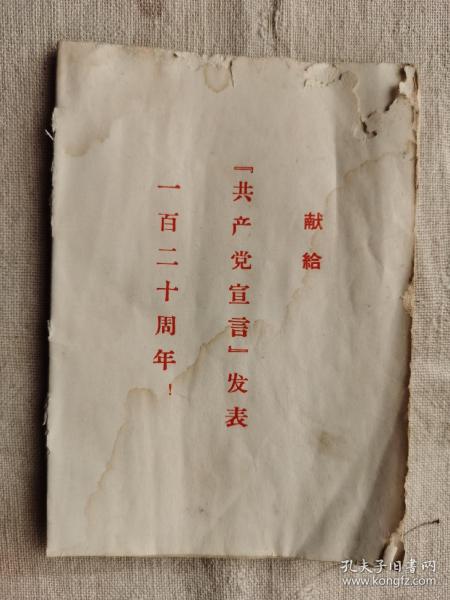 献給
『共产党宣言』发表
一百二十周年！
孔夫子旧书网
www.kongfz.com